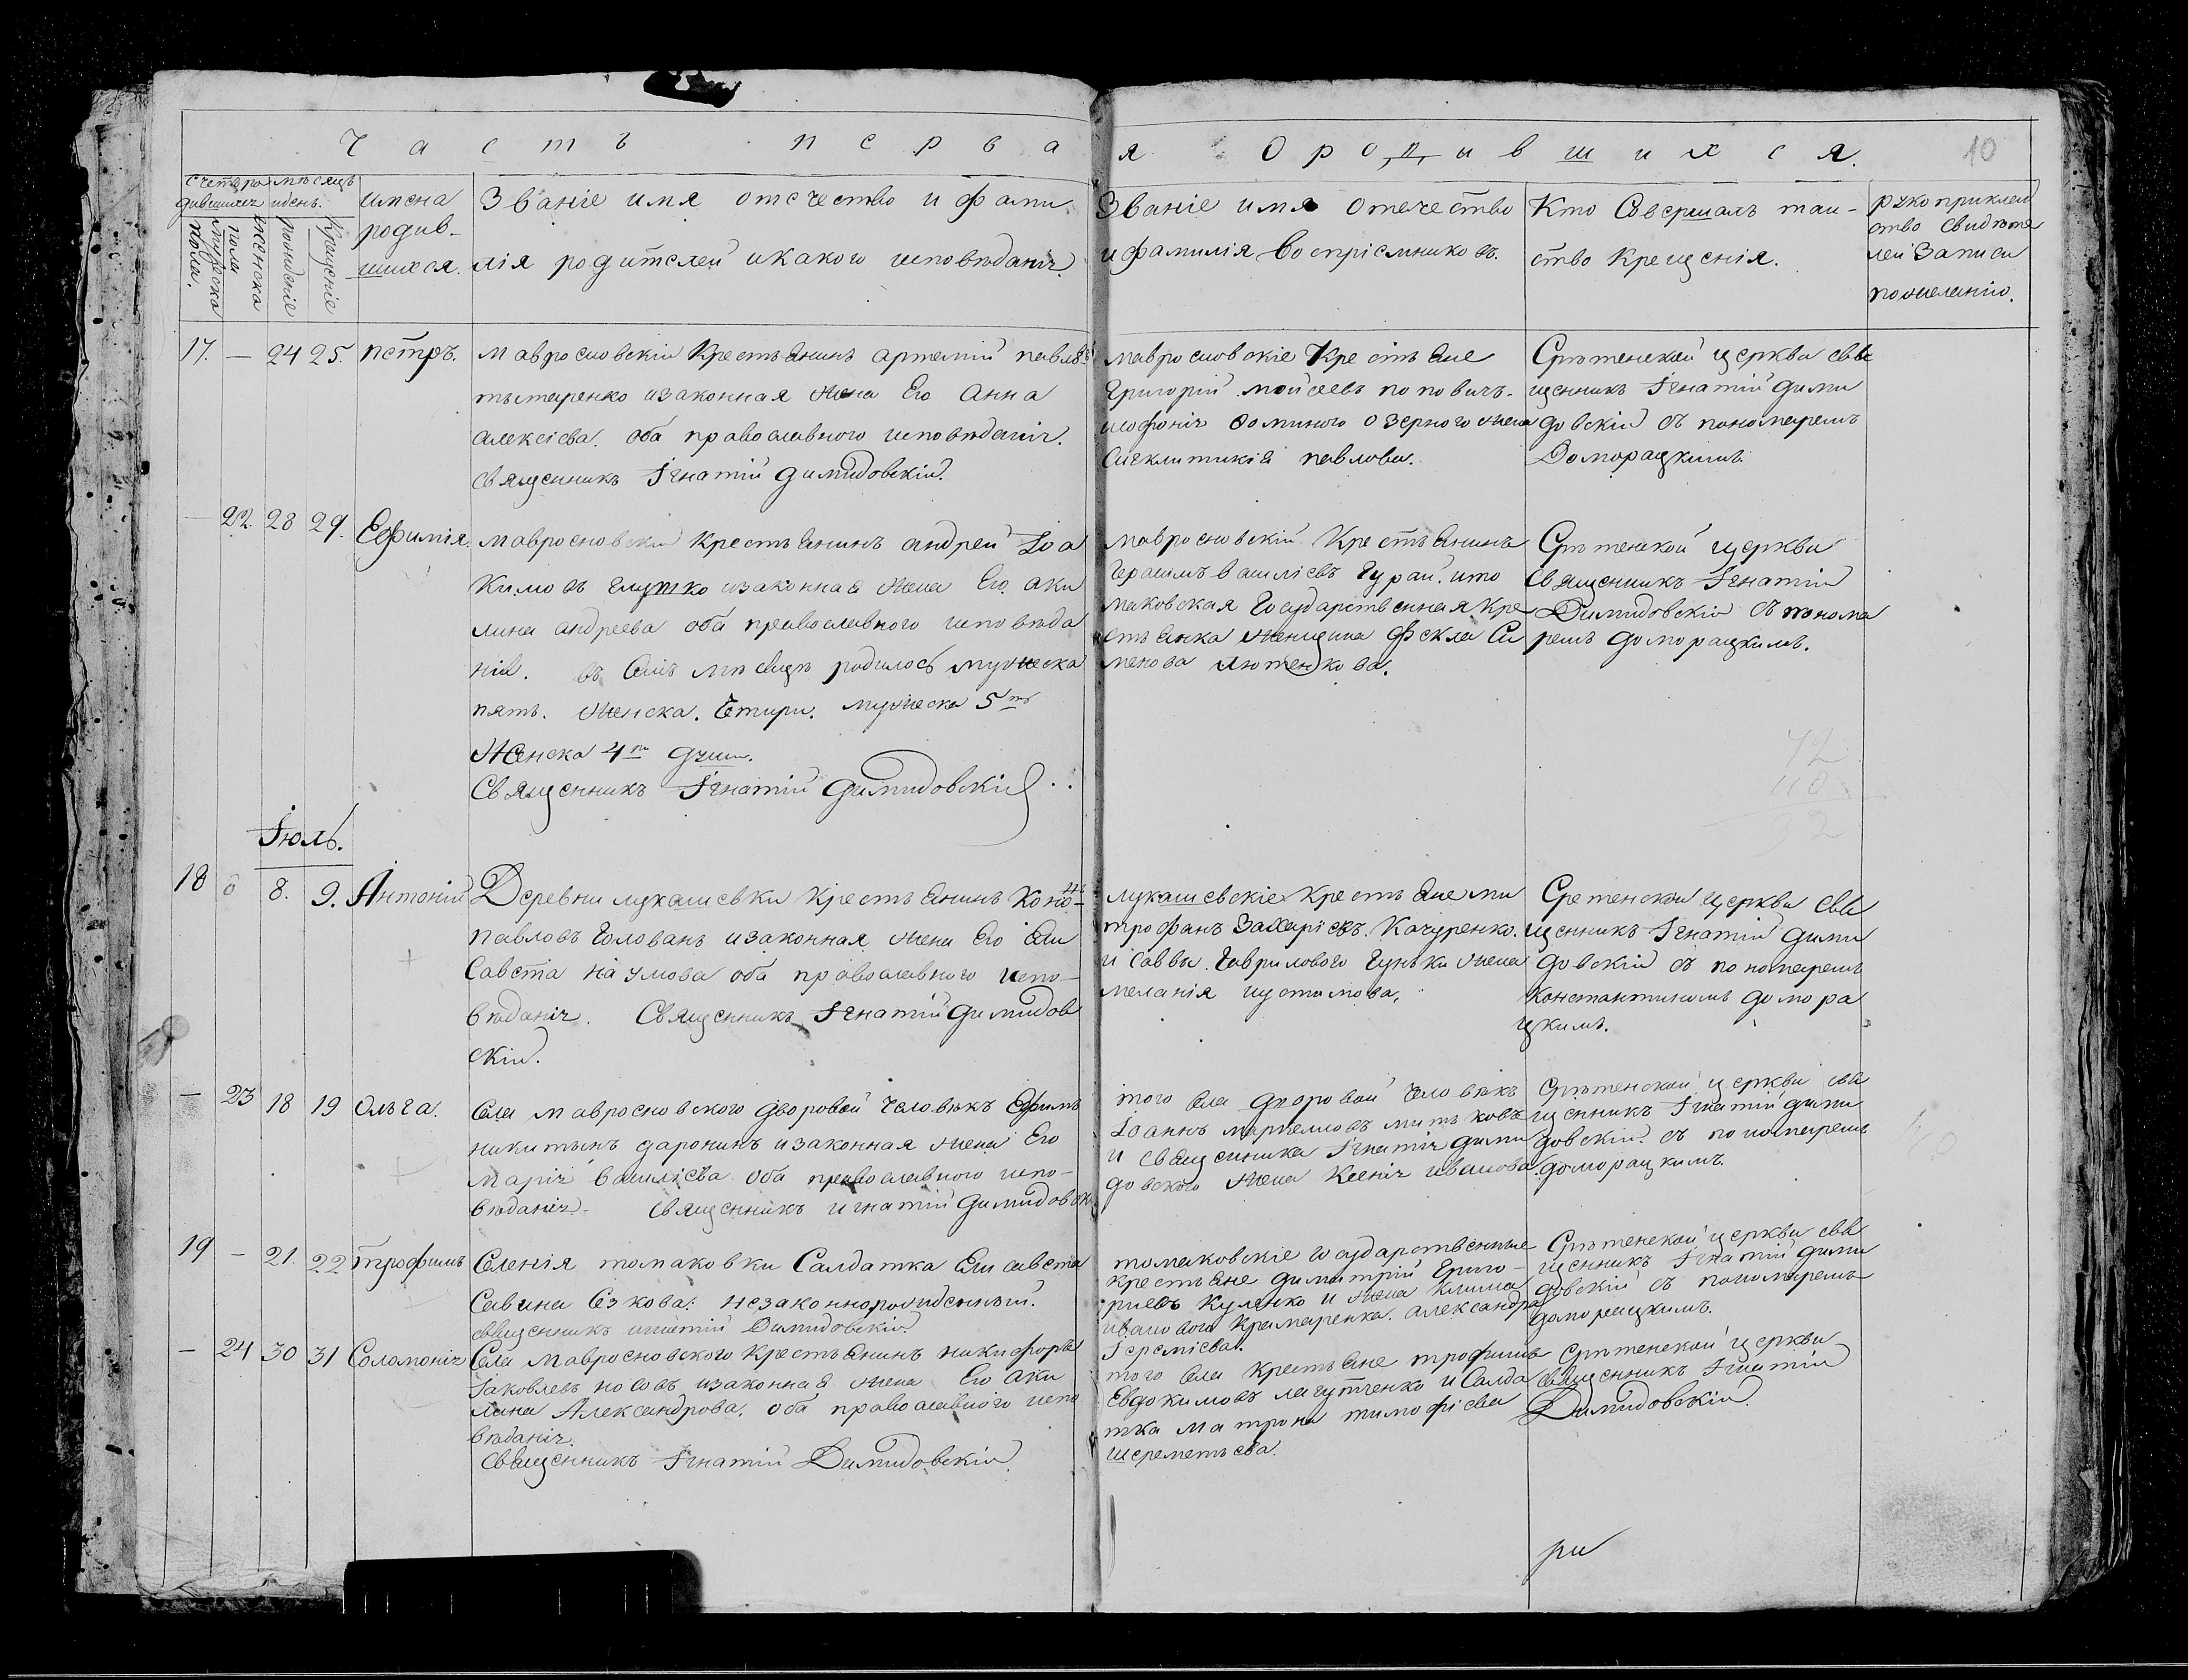 Часть перва
я О родившихся.
10
Счетъ ро
дившихся
мѣсяцъ
и день.
имена
родив-
шихся.
Званіе имя отечество и фами
лія родителей и какого исповѣданія
Званіе имя отечество
и фамилія воспріемниковъ.
Кто Совершалъ таи-
ство Крещенія.
рукоприклад
ство свидѣте
лей Записи
по желанію.
мужеска
пола.
женска
пола
рожденіе
крещеніе
17. — 24 25. Петръ.
мавриновскій Крестьянинъ артемій павловъ
тытаренко и законная жена Его Анна
алексіева. оба православного исповѣданія.
Священникъ Ігнатій Димидовскій.
мавриновскіе Крестьяне
Григорій мойсеевъ поповичъ.
жена
Сигклитикія павлова.
Срѣтенской церкви свя
щенникъ Ігнатій дими
довскій съ пономаремъ
Доморацкимъ.
— 22. 28 29. Евфимія.
мавриновскій крестьянинъ андрей Іоа
кимовъ глушко и законная жена Его аки
лина андреева оба православного исповѣда
нія. въ семъ мѣсяцѣ родилось мужеска
пять. женска. Четыри. мужеска 5ть
Женска 4ри душъ.
Священникъ Ігнатій димидовскій
мавриновскій Крестьянинъ
Герасимъ василіевъ Гурай. и то
маковская Государственная кре
стьянка женщина Фекла Си
менова лютенкова.
Срѣтенской церкви
Священникъ Ігнатій
Димидовскій съ понома
ремъ доморацкимъ.
72
110
32
Іюль.
18 0 8. 9. Антоній
Деревни лукашевки крестьянинъ Коно
Павловъ Голованъ и законная жена Его Ели
Савета наумова оба православного испо-
вѣданія. Священникъ Ігнатій димидов
скій.
лукашевскіе крестьяне ми
трофанъ Захаріевъ Качуренко.
и Саввы Гаврилового Гуньки жена
меланія иустинова,
Сретенской церкви свя
щенникъ Ігнатій дими
довскій съ пономаремъ
Константиномъ домора
цкимъ.
— 23 18 19 Ольга.
Села мавриновского дворовой человѣкъ Ефимъ
никитынъ даронинъ и законная жена Его
марія василіева оба православного испо-
вѣданія. священникъ игнатій димидовскій
того села дворовой человѣкъ
Іоаннъ митьковъ
и священника Ігнатія дими
довского жена Ксенія иванова
Срѣтенской церкви свя
щенникъ Ігнатій дими
довскій съ пономаремъ
доморацкимъ.
19 — 21. 22 трофимъ
Селенія томаковки Салдатка Елисавета
Савина Езкова. незаконнорожденный.
священникъ игнатій Димидовскій.
томаковскіе государственные
крестьяне димитрій Григо-
риевъ Куленко и жена Клима
иванового Крамаренка. александра
Іереміева.
Срѣтенской церкви свя
щенникъ Ігнатій дими
довскій съ пономаремъ
доморацкимъ.
— 24 30 31 Соломонія
Села Мавриновского крестьянинъ никифоръ
Іаковлевъ носовъ и законная жена Его Аки
лина Александрова. оба православного испо
вѣданія.
Священникъ Ігнатій Димидовскій.
того села крестьяне трофимъ
Евдокимовъ лагутченко и Салда
тка матрона тимофіева
шереметьева.
Срѣтенской церкви
священникъ Ігнатій
Димидовскій.
ри